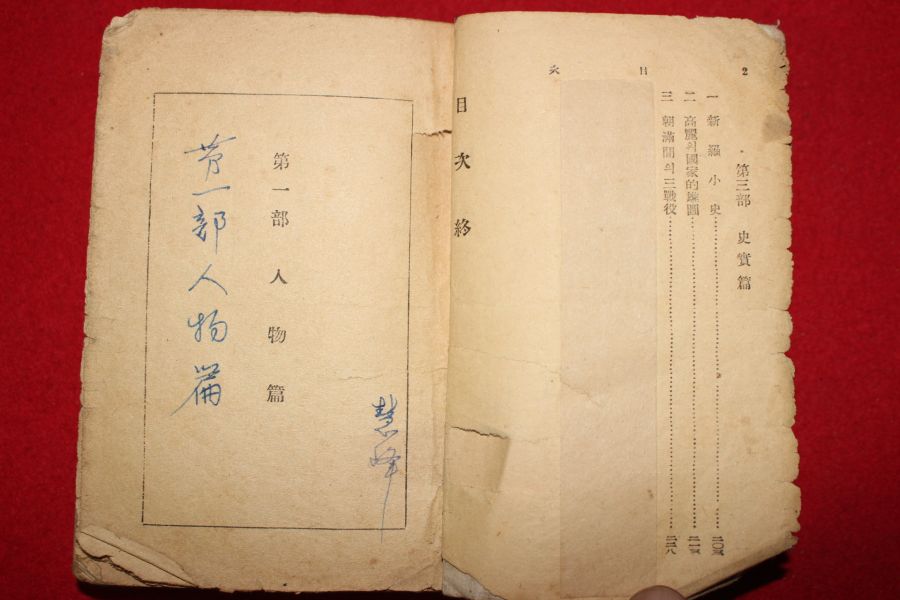 2 目 次
第三部 史實篇
一 新羅小史
二 高麗의國家的圖
三 朝滿間의三戰役 二二八
目次終
第一部 人物篇
慧峰
第一部人物篇